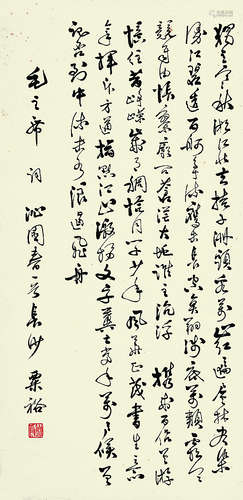 独立寒秋湘江北去橘子洲頭看萬山红遍层林尽染
漫江碧透百舸争流鹰击长空鱼翔浅底萬類霜天
競自由怅寥廓问苍茫大地谁主沉浮 携来百侣曾游
忆往昔峥嵘岁月稠恰同学少年风华正茂书生意
气挥斥方遒指点江山激扬文字粪土当年万户侯曾
记否到中流击水浪遏飞舟
毛主席词 沁園春 长沙 粟裕